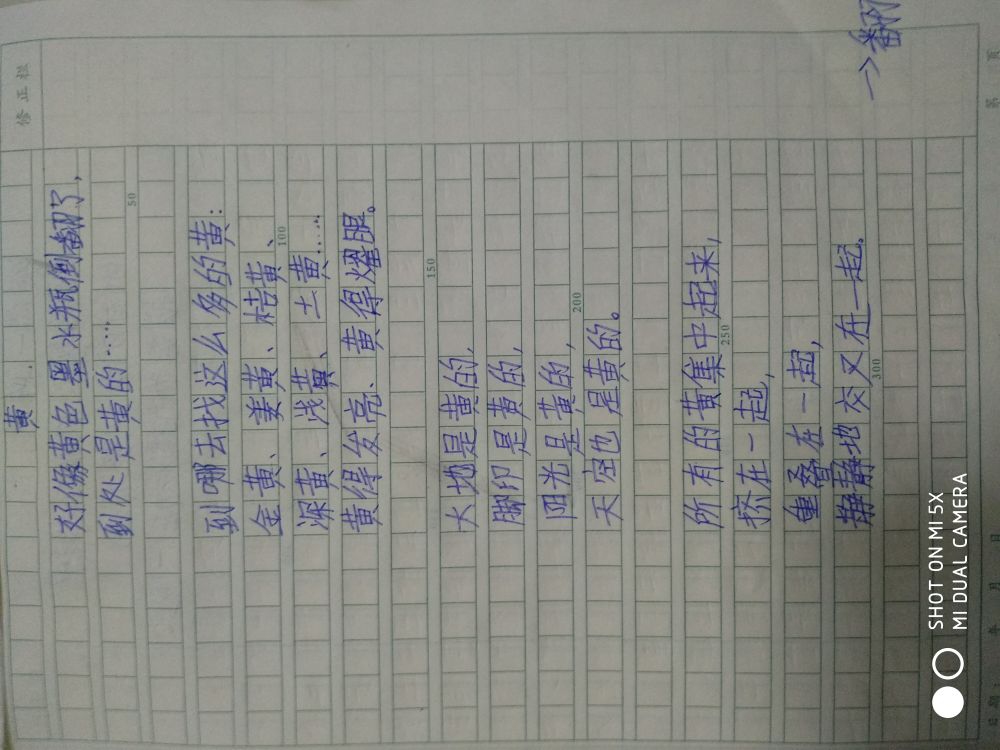 修正栏
黄
好像黄色墨水瓶倒翻了，
到处是黄的……
50
到哪去找这么多的黄：
金黄、姜黄、桔黄、
100
深黄、浅黄、土黄……
黄得发亮、黄得耀眼。
150
大地是黄的，
脚印是黄的，
阳光是黄的，
200
天空也是黄的。
所有的黄集中起来，
250
挤在一起，
重叠在一起，
静静地交叉在一起。
300
→翻
第 页
年 月 日
SHOT ON MI 5X
MI DUAL CAMERA